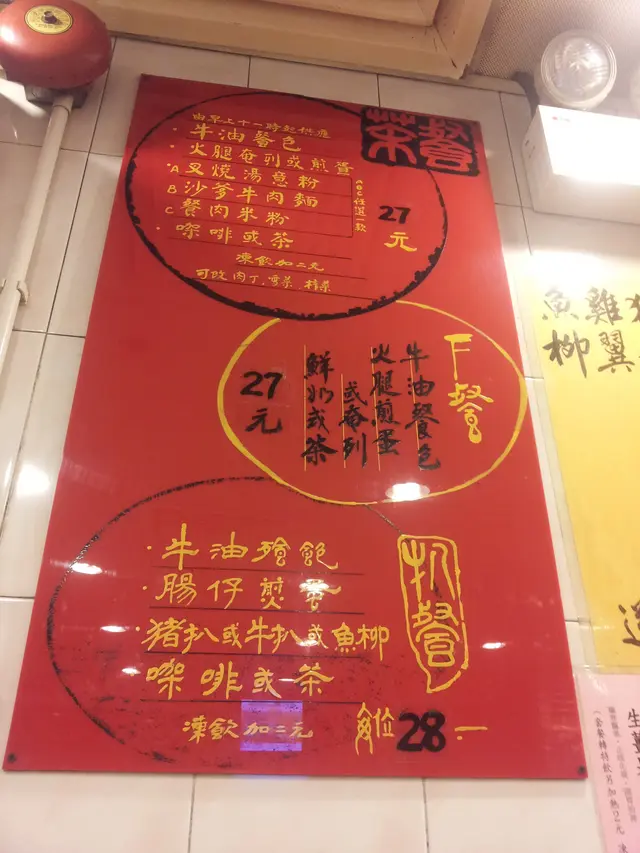 茶餐
由早上十一時起供應
·牛油餐包
·火腿奄列或煎蛋
A叉燒湯意粉
B沙爹牛肉麵
C餐肉米粉
ABC任選一款
·㗎啡或茶
27元
凍飲加二元
可改肉丁、雪菜、榨菜
F餐
牛油餐包
火腿煎蛋
或奄列
鮮奶或茶
27元
扒餐
·牛油飱飽
·腸仔煎蛋
·猪扒或牛扒或魚柳
㗎啡或茶
凍飲加二元
每位28.一
雞翼
魚柳